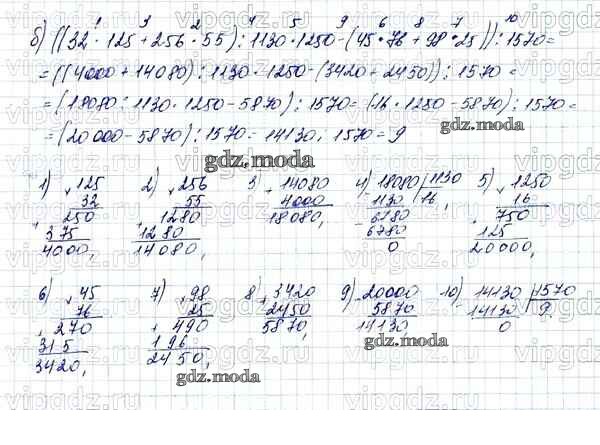 1 3 2 4 5 9 6 8 7 10
б) ((32 · 125 + 256 · 55) : 1130 · 1250 - (45 · 76 + 98 · 25)) : 1570 =
= ((4000 + 14080) : 1130 · 1250 - (3420 + 2450)) : 1570 =
= (18080 : 1130 · 1250 - 5870) : 1570 = (16 · 1250 - 5870) : 1570 =
= (20000 - 5870) : 1570 = 14130 : 1570 = 9
gdz.moda
gdz.moda
1) × 125 2) × 256 3) + 14080 4) - 18080 | 1130 5) × 1250
32 55 4000 1130 16, 16
+ 250 + 1280 18080, - 6780 + 750
375 1280 6780 125
4000, 14080, 0 20000,
6) × 45 7) × 98 8) + 3420 9) - 20000 10) - 14130 | 1570
76 25 2450 5870 14130 9.
+ 270 + 490 5870, 14130 0
315 196 gdz.moda
3420, 2450,
gdz.moda
vipgdz.ru